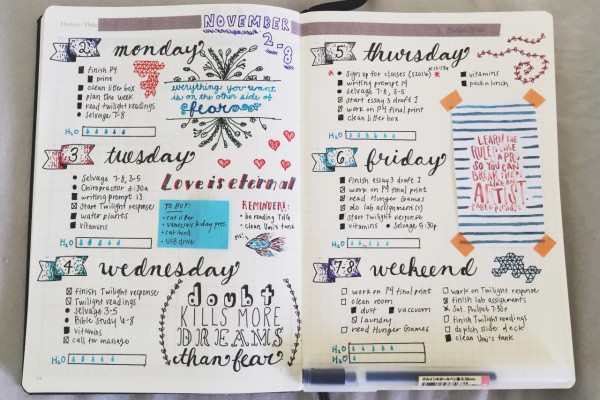 NOVEMBER
2-8
2
monday
finish P4
prins
clean litter box
plan the week
read twilight readings
selvage 7-8
H2O
everything you want
is on the other side of
fear
3
tuesday
selvage 7-8, 3-5
Chiropractor 6:30a
writing prompt 13
start Twilight response
water plants
vitamins
H2O
Love is eternal
TO BUY:
cat litter
cat food
USB driver
REMINDERS:
be reading THG
clean Umi's tank
4
wednesday
finish Twilight response
Twilight readings
selvage 3-5
Bible Study 6-8
vitamins
call for massage
H2O
doubt
KILLS MORE
DREAMS
than fear
5
thursday
sign up for classes (s2016)
writing prompt 14
selvage 7-8, 3-5
start essay 3 draft 1
work on P4 final print
clean litter box
vitamins
pack a lunch
H2O
LEARN THE
RULES LIKE A
PRO, SO YOU CAN
BREAK THEM
LIKE AN
ARTIST.
PABLO PICASSO
6
friday
finish essay 3 draft 1
work on P4 final print
read Hunger Games
do lab assignment(s)
start Twilight response
vitamins selvage 5:30p
H2O
7-8
weekend
work on P4 final print
clean room
dust vacuum
laundry
read Hunger Games
work on Twilight response
finish lab assignments
Sat. Potluck 7:30p
finish Twilight readings
clean Umi's tank
H2O
H2O